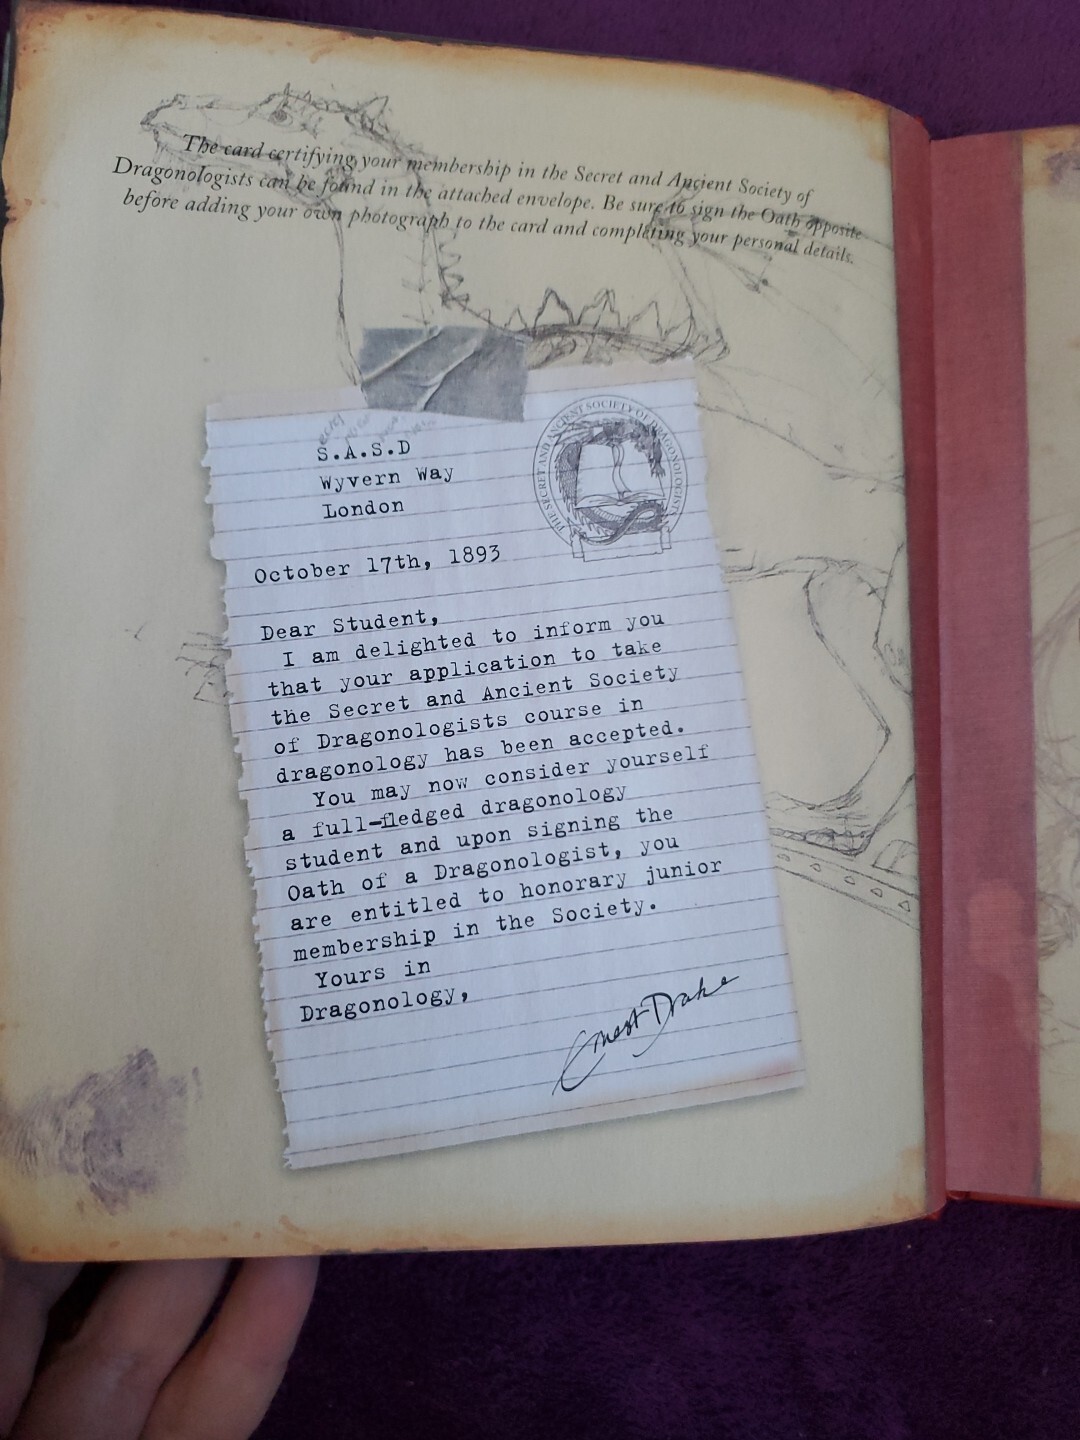 The card certifying your membership in the Secret and Ancient Society of
Dragonologists can be found in the attached envelope. Be sure to sign the Oath opposite
before adding your own photograph to the card and completing your personal details.
S.A.S.D
Wyvern Way
London
THE SECRET AND ANCIENT SOCIETY OF DRAGONOLOGISTS
October 17th, 1893
Dear Student,
I am delighted to inform you
that your application to take
the Secret and Ancient Society
of Dragonologists course in
dragonology has been accepted.
You may now consider yourself
a full-fledged dragonology
student and upon signing the
Oath of a Dragonologist, you
are entitled to honorary junior
membership in the Society.
Yours in
Dragonology,
Ernest Drake